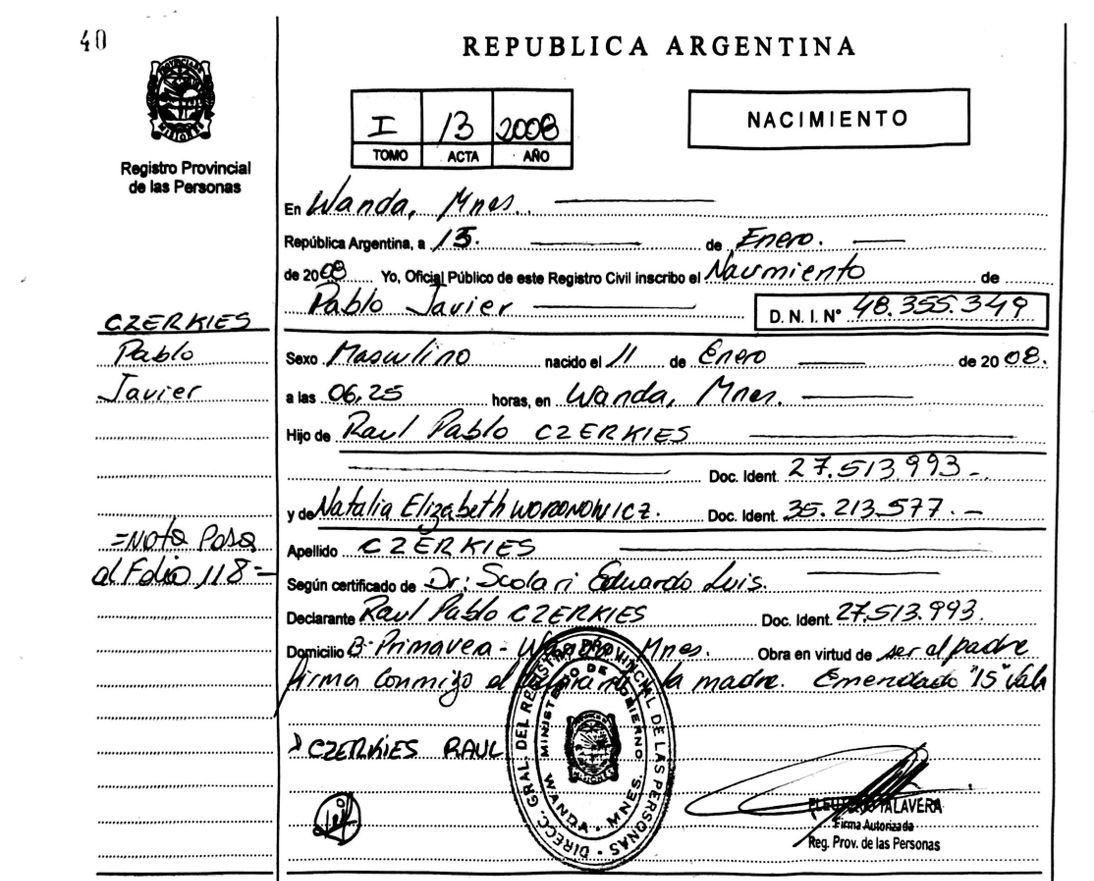 40
REPUBLICA ARGENTINA
I 13 2008
TOMO ACTA AÑO
NACIMIENTO
Registro Provincial
de las Personas
En Wanda, Mnes.
República Argentina, a 15. de Enero.
de 2008 Yo, Oficial Público de este Registro Civil inscribo el Nacimiento de
Pablo Javier D. N. I. N° 48.355.349
CZERKIES
Pablo
Javier
Sexo Masculino nacido el 11 de Enero de 2008.
a las 06,25 horas, en Wanda, Mnes.
Hijo de Raul Pablo CZERKIES
Doc. Ident. 27.513.993-
y de Natalia Elizabeth WORONOWICZ. Doc. Ident. 35.213.577.-
=NOTA Pasa
al Folio 118=
Apellido CZERKIES
Según certificado de Dr: Scolari Eduardo Luis.
Declarante Raul Pablo CZERKIES Doc. Ident. 27.513.993.
Domicilio B° Primavea - Wanda, Mnes. Obra en virtud de ser el padre
firma conmigo el la madre. Emendado "15" Vale
CZERKIES RAUL
DIRECC. GRAL. DEL REGISTRO PROVINCIAL DE LAS PERSONAS
MINISTERIO DE GOBIERNO
WANDA - MNES.
ELEUTERIO TALAVERA
Firma Autorizada
Reg. Prov. de las Personas